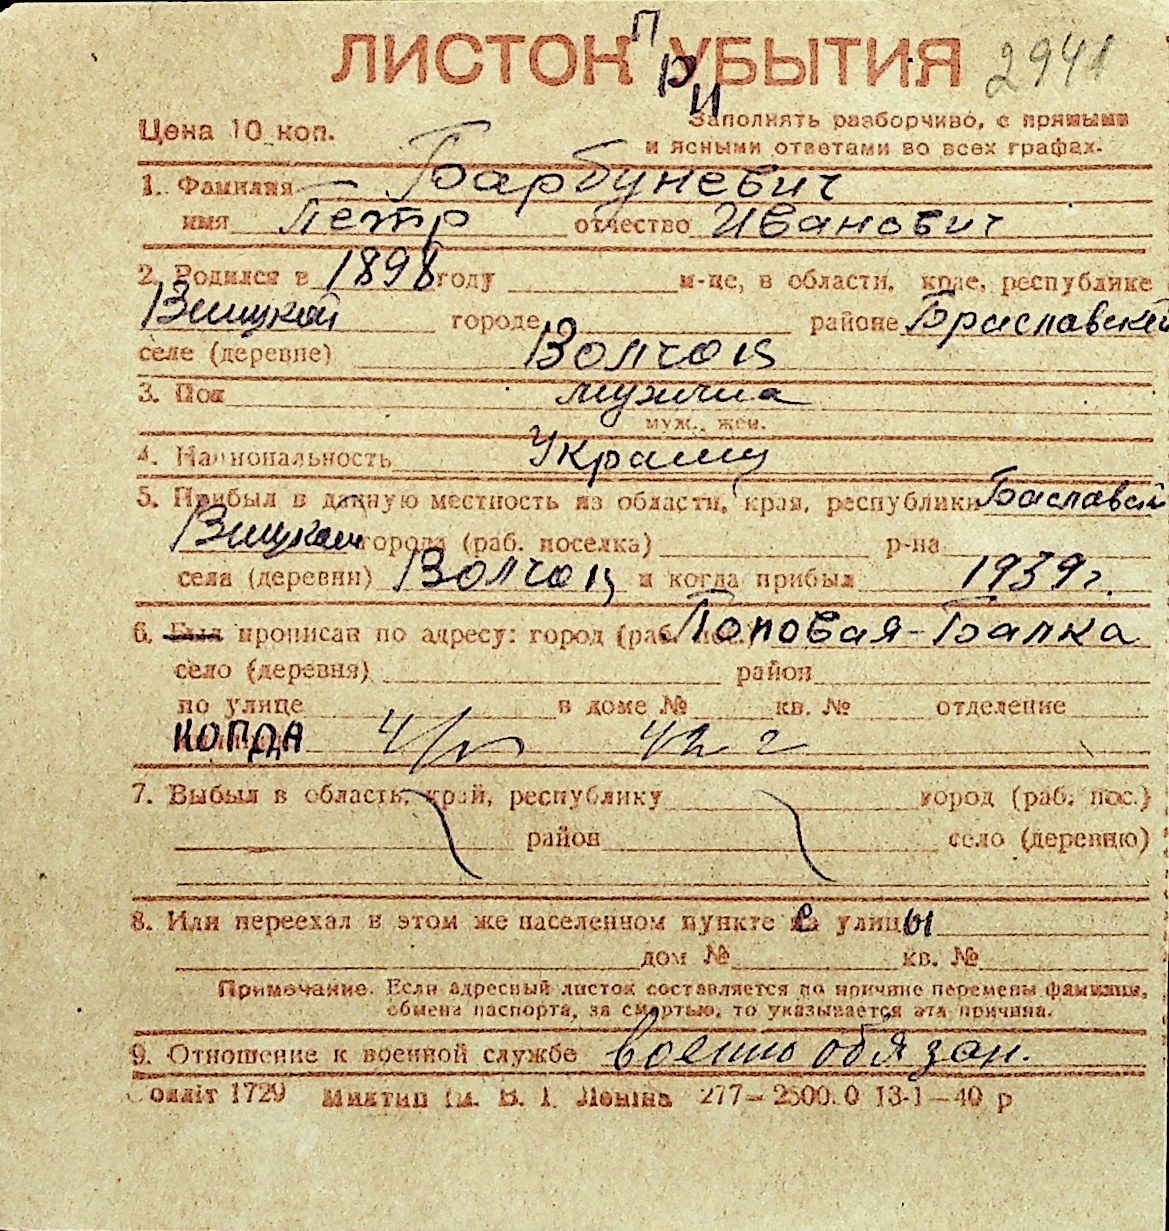 ЛИСТОК ПРИ УБЫТИЯ 2941
Цена 10 коп.
Заполнять разборчиво, с прямыми
и ясными ответами во всех графах.
1. Фамилия Барбуневич
имя Петр отчество Иванович
2. Родился в 1898 году м-це, в области, крае, республике
Вицкой городе районе Браславской
селе (деревне) Волчок
3. Пол мужчина
муж., жен.
4. Национальность Украинц
5. Прибыл в данную местность из области, края, республики Баславской
Вицкой города (раб. поселка) р-на
села (деревни) Волчок и когда прибыл 1939 г.
6. Был прописан по адресу: город (раб. пос.) Поповая-Балка
село (деревня) район
по улице в доме № кв. № отделение
КОГДА 42 г
7. Выбыл в область, край, республику город (раб. пос.)
район село (деревню)
8. Или переехал в этом же населенном пункте с улицы
дом № кв. №
Примечание. Если адресный листок составляется по причине перемены фамилии,
обмена паспорта, за смертью, то указывается эта причина.
9. Отношение к военной службе военно обязан.
Облліт 1729 Миктип ім. В. І. Леніна 277— 2500.0 13-1—40 р